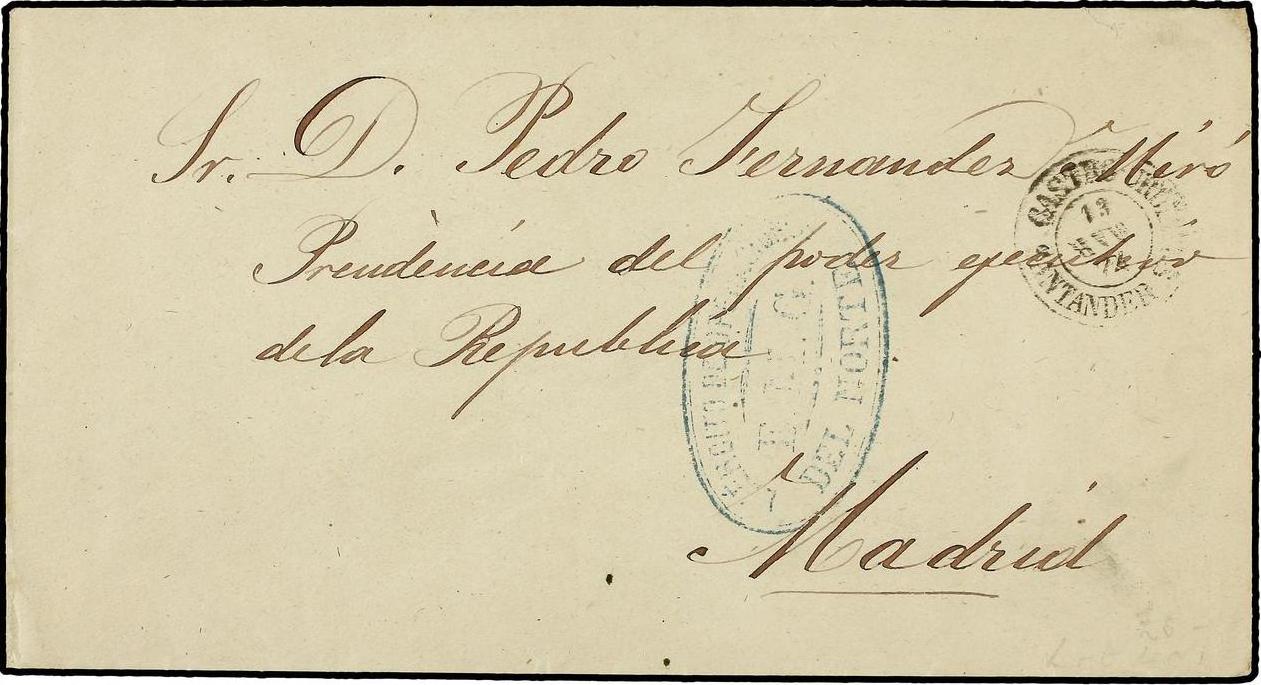 Sr. D. Pedro Fernandez Miró
Precidencia del poder ejecutivo
de la Republica
Madrid
CASTRO URDIALES
13
SANTANDER
DEL NORTE
E. M. G.